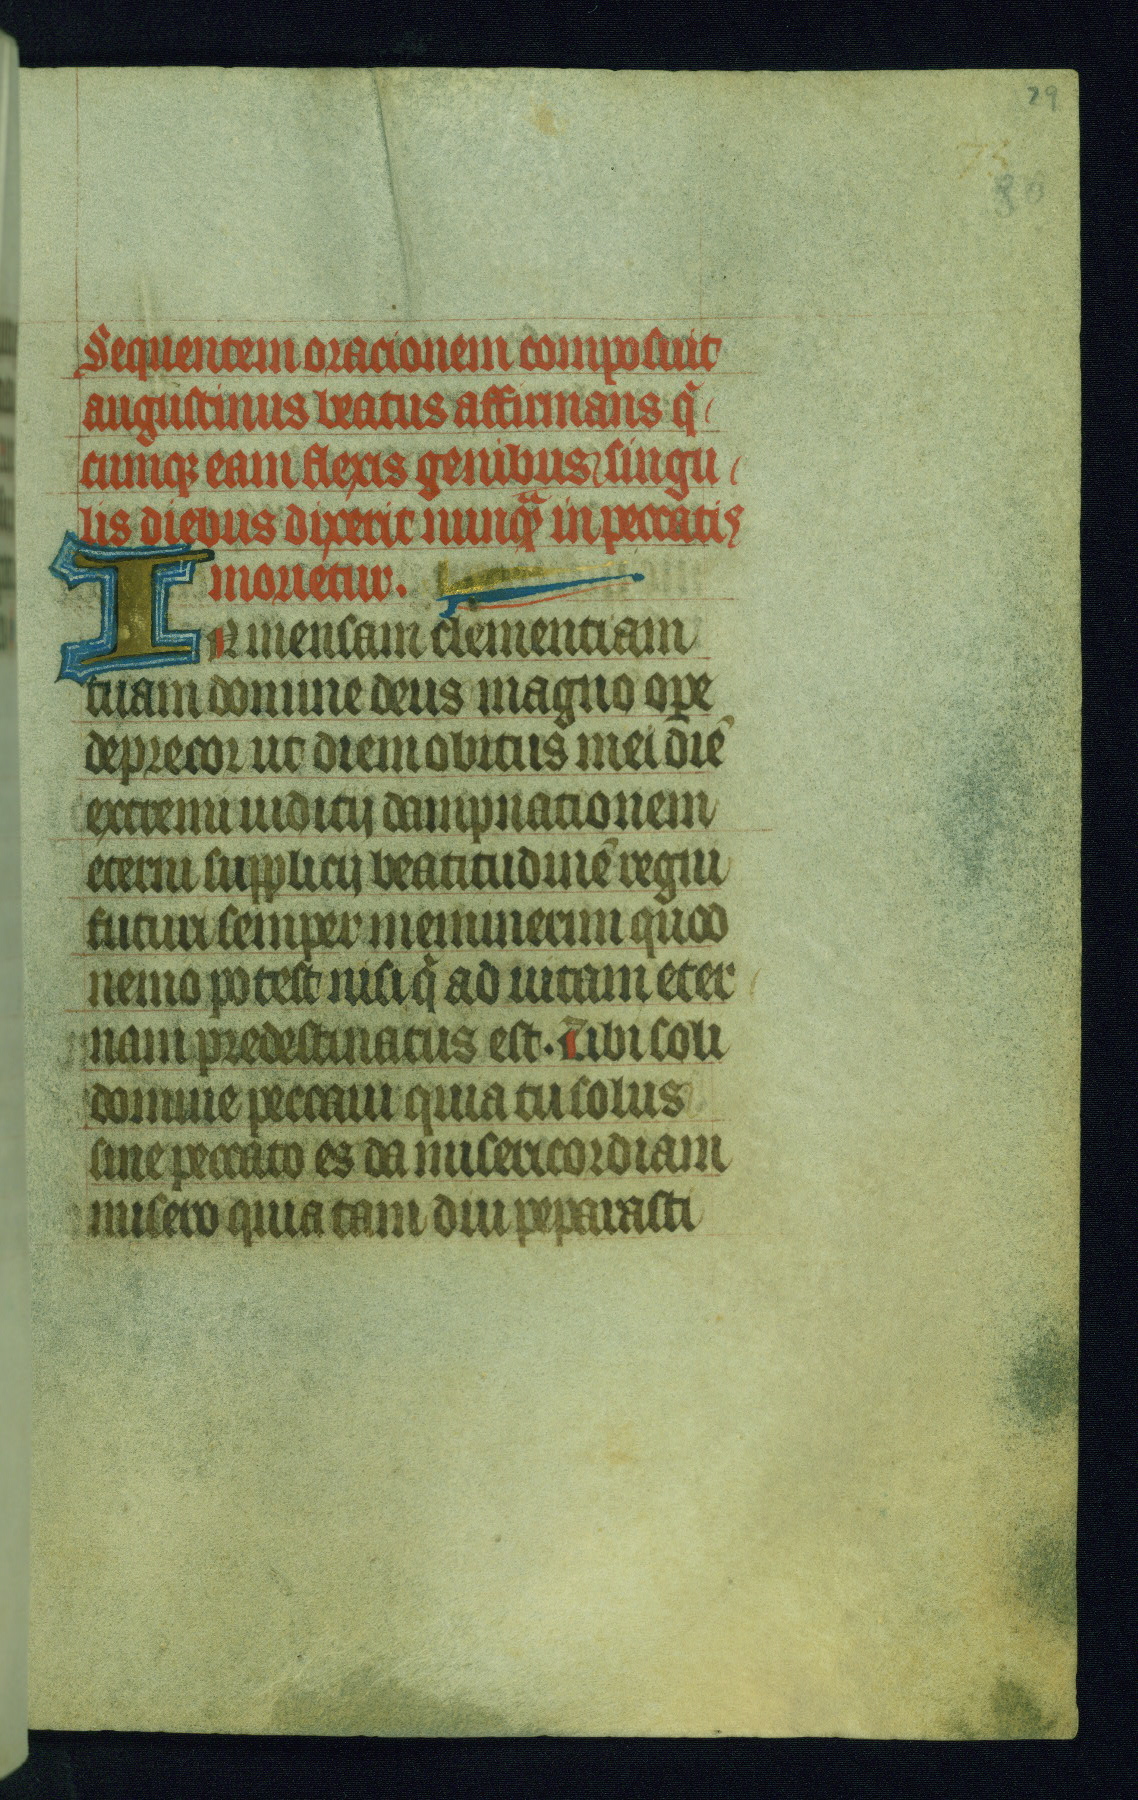 29
73
30
Sequentem oracionem composuit
augustinus beatus affirmans q̃
cumq; eam flexis genibus singu
lis diebus dixerit nunqᷓ in peccatis
morietur.
IN mensam clementiam
tuam domine deus magno ope
deprecor ut diem obitus mei diē
extremi iudicij dampnationem
eterni supplicij beatitudinē regni
futuri semper meminerim quod
nemo potest nisi q̃ ad uitam eter
nam predestinatus est. Tibi soli
domine peccaui quia tu solus
sine peccato es da misericordiam
misero quia tam diu peparasti